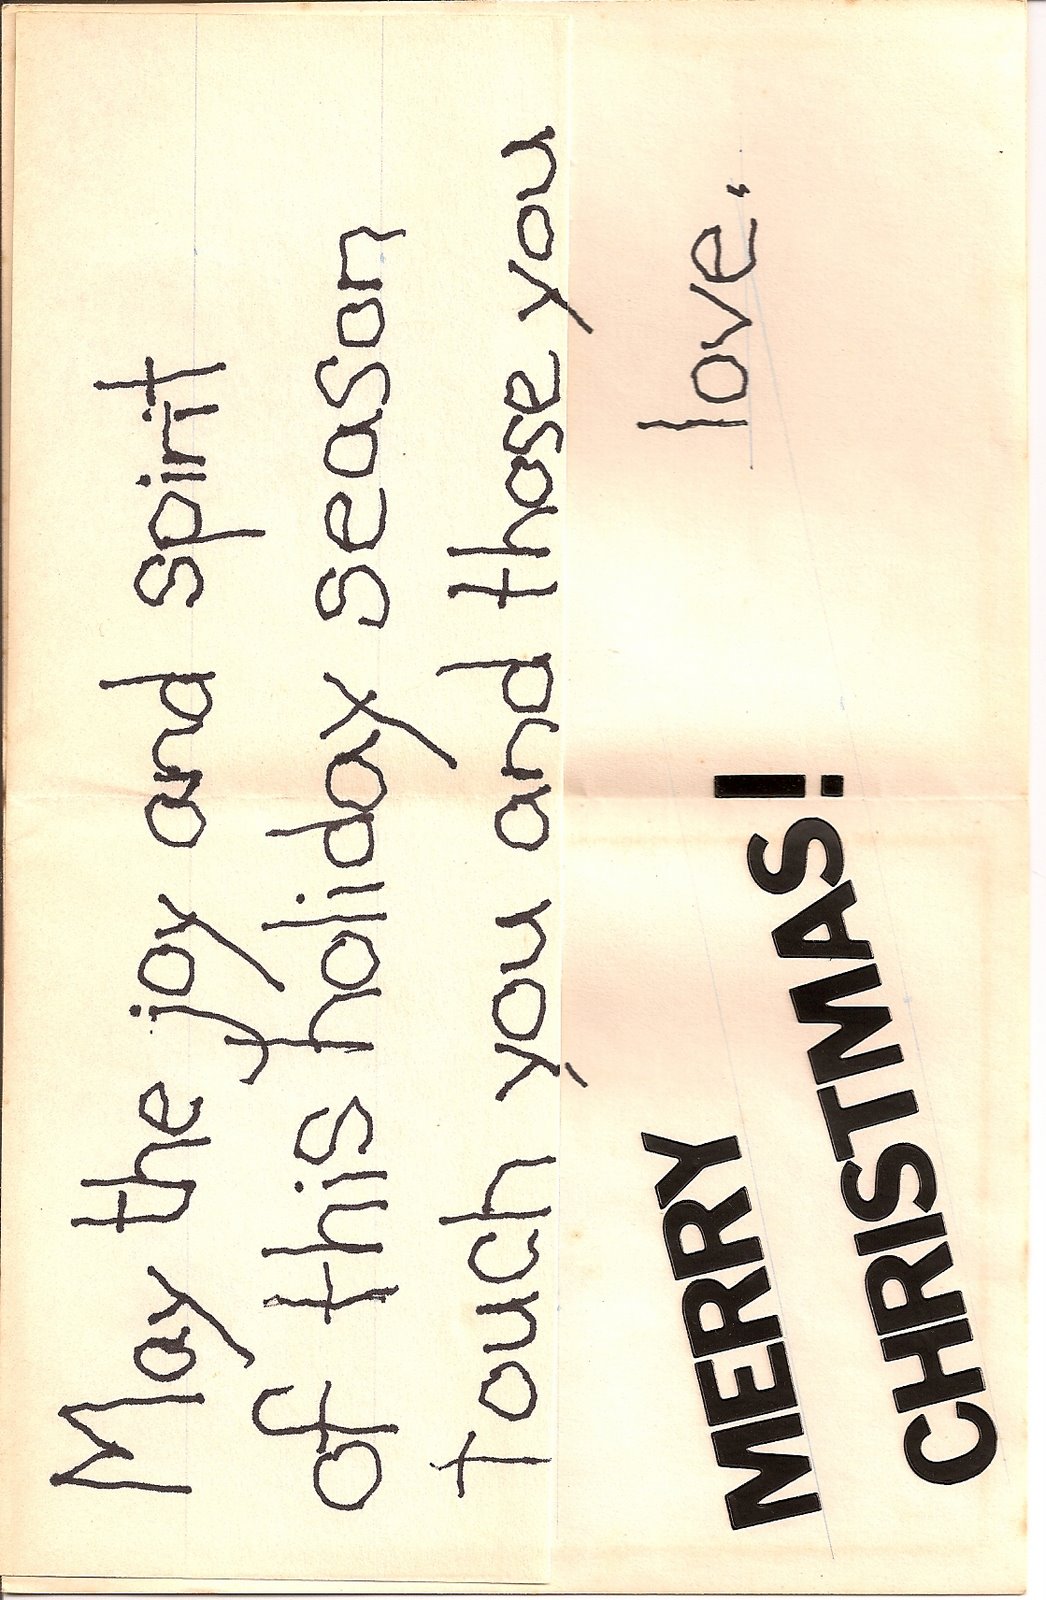 May the joy and spirit
of this holiday season
touch you and those you
love.
MERRY
CHRISTMAS!